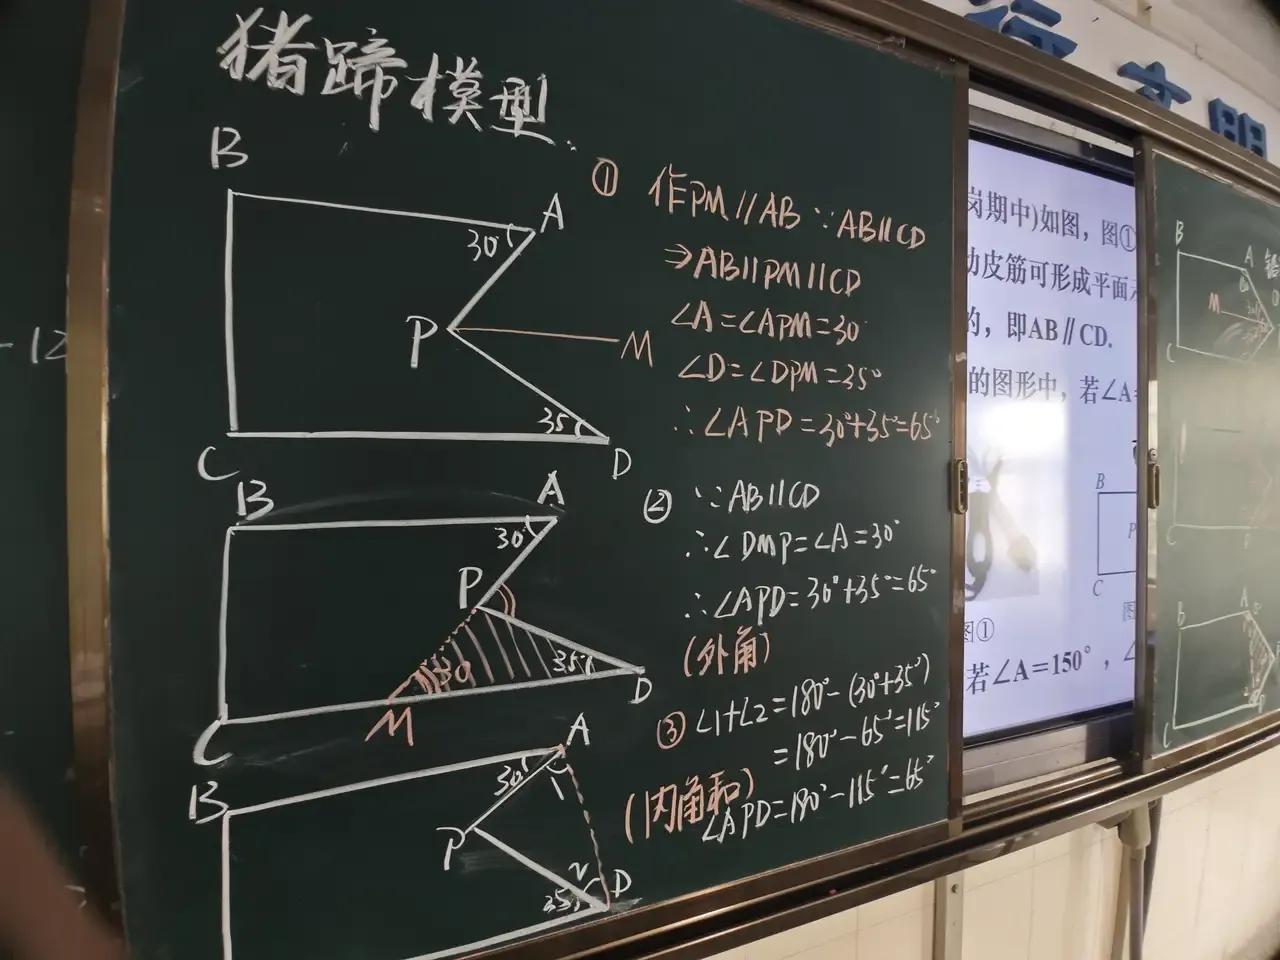 猪蹄模型
B
A
30°
P
M
35°
C
D
① 作PM∥AB ∵AB∥CD
⇒AB∥PM∥CD
∠A=∠APM=30°
∠D=∠DPM=35°
∴∠APD=30°+35°=65°
B
A
30°
P
30
35°
D
M
C
② ∵AB∥CD
∴∠DMP=∠A=30°
∴∠APD=30°+35°=65°
(外角)
B
A
30°
1
P
2
35°
D
③ ∠1+∠2=180°-(30°+35°)
=180°-65°=115°
(内角和)
∠APD=180°-115°=65°
岗期中)如图，图①
皮筋可形成平面
的，即AB∥CD.
的图形中，若∠A=
B
P
C
图
图①
若∠A=150°，∠
B
A
M
C
B
A
C
-12
文明